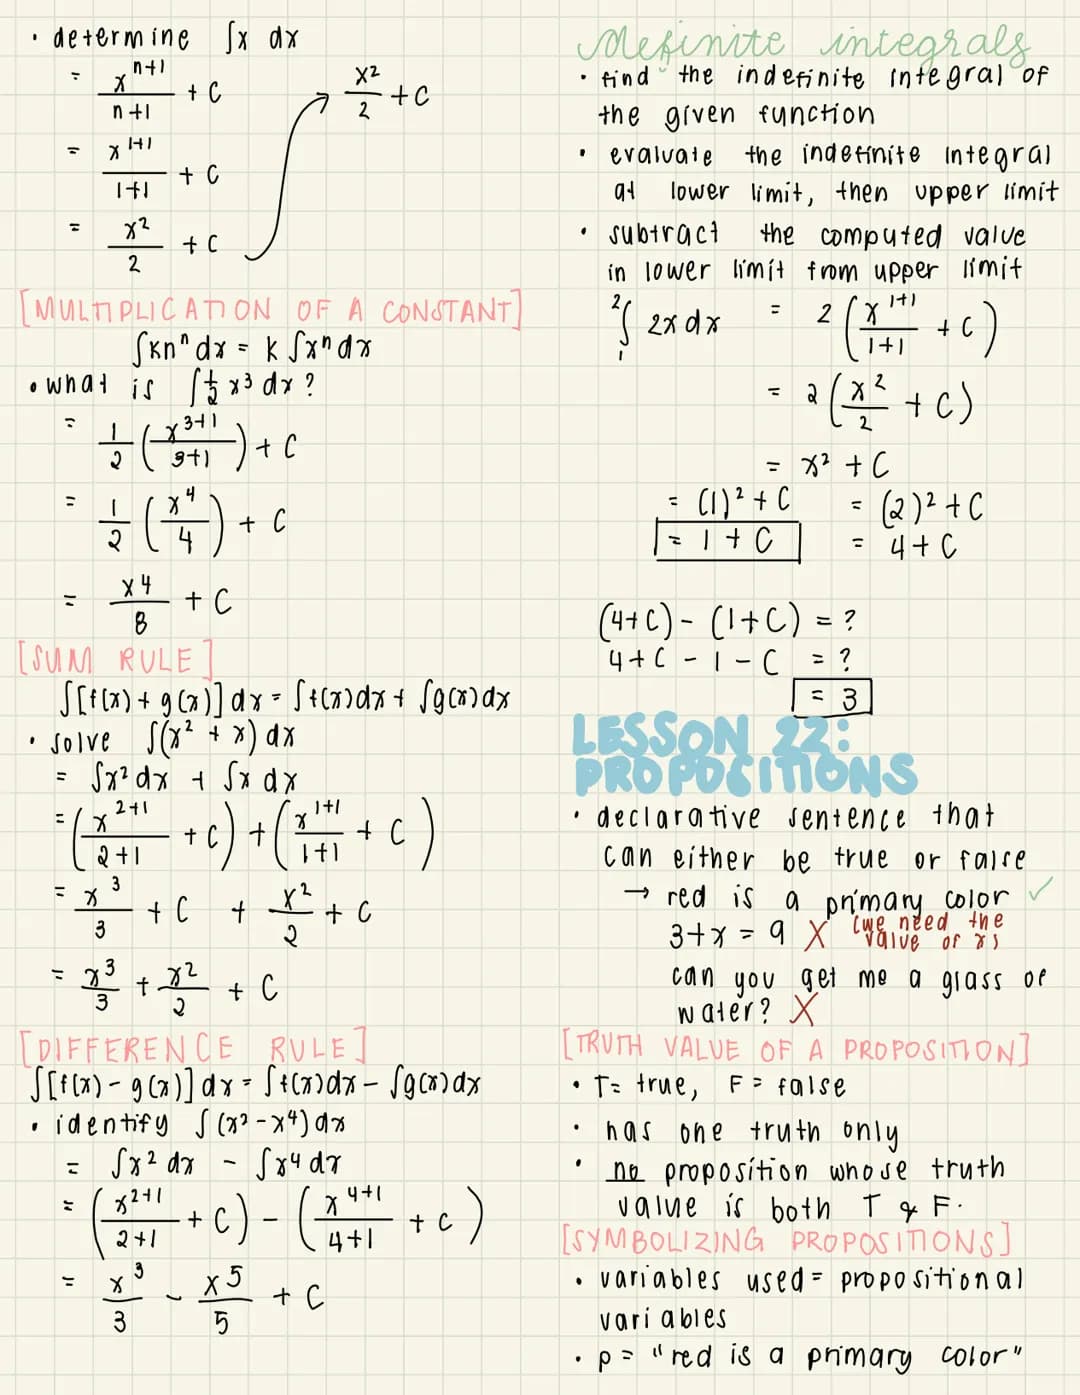 • determine ∫x dx
= x^(n+1)/(n+1) + C
= x^(1+1)/(1+1) + C
= x²/2 + C
x²/2 + C
[MULTIPLICATION OF A CONSTANT]
∫kn^n dx = k ∫x^n dx
• what is ∫½ x³ dx?
= 1/2 (x^(3+1)/(3+1)) + C
= 1/2 (x⁴/4) + C
= x⁴/8 + C
[SUM RULE]
∫[f(x) + g(x)] dx = ∫f(x)dx + ∫g(x)dx
• solve ∫(x² + x) dx
= ∫x² dx + ∫x dx
= (x^(2+1)/(2+1) + C) + (x^(1+1)/(1+1) + C)
= x³/3 + C + x²/2 + C
= x³/3 + x²/2 + C
[DIFFERENCE RULE]
∫[f(x) - g(x)] dx = ∫f(x)dx - ∫g(x)dx
• identify ∫(x² - x⁴) dx
= ∫x² dx - ∫x⁴ dx
= (x^(2+1)/(2+1) + C) - (x^(4+1)/(4+1) + C)
= x³/3 - x⁵/5 + C
definite integrals
• find the indefinite integral of
the given function
• evaluate the indefinite integral
at lower limit, then upper limit
• subtract the computed value
in lower limit from upper limit
²∫₁ 2x dx = 2(x^(1+1)/(1+1) + C)
= 2(x²/2 + C)
= x² + C
= (1)² + C = (2)² + C
= 1 + C = 4 + C
(4+C) - (1+C) = ?
4+C - 1 - C = ?
= 3
LESSON 22:
PROPOSITIONS
• declarative sentence that
can either be true or false
→ red is a primary color ✓
3+x = 9 X (we need the
value of x)
can you get me a glass of
water? X
[TRUTH VALUE OF A PROPOSITION]
• T = true, F = false
• has one truth only
• no proposition whose truth
value is both T & F.
[SYMBOLIZING PROPOSITIONS]
• variables used = propositional
variables
• p = "red is a primary color"